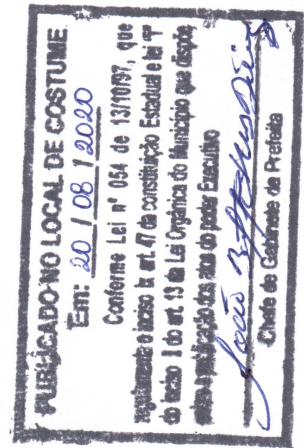 PUBLICADO NO LOCAL DE COSTUME
Em: 20 / 08 / 2020
Conforme Lei nº 054 de 13/10/97, que
regulamenta o inciso Ix art. 47 da constituição Estadual e lei 1ª
do inciso I do art. 13 da Lei Orgânica do Município que dispõe
a publicação dos atos do poder Executivo
João
Chefe de Gabinete da Prefeita